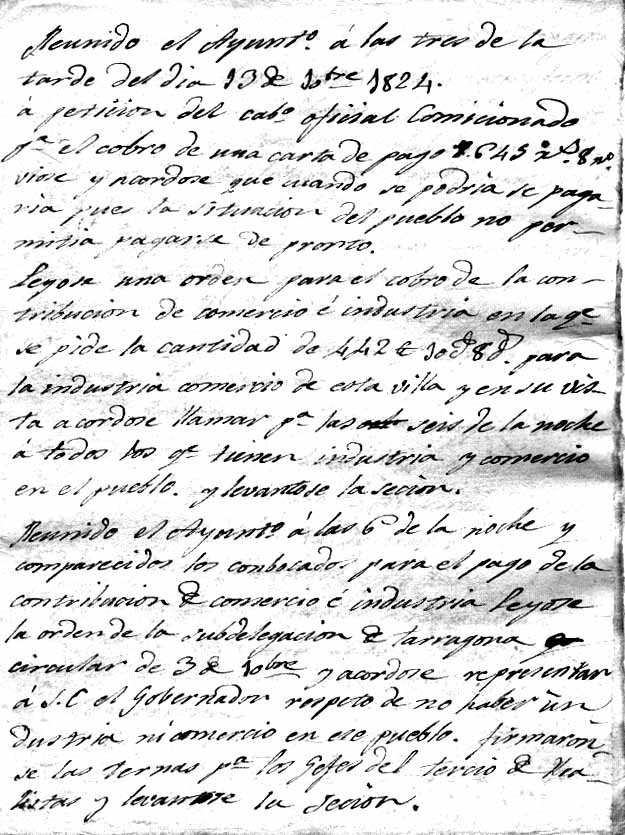 Reunido el Ayunt.º á las tres de la
tarde del dia 13 de 10bre 1824.
á peticion del cabº oficial Comicionado
pª el cobro de una carta de pago 7.643 rs. 8 ms.
viose y acordose que cuando se podria se paga-
ria pues la situacion del pueblo no per-
mitia pagarse de pronto.
Leyose una orden para el cobro de la con-
tribucion de comercio é industria en la qe
se pide la cantidad de 442 £ 10 8 para
la industria comercio de esta villa y en su vis-
ta acordose llamar pª las seis de la noche
á todos los qe tienen industria y comercio
en el pueblo. y levantose la secion.
Reunido el Ayuntº á las 6 de la noche y
comparecidos los conbocados para el pago de la
contribucion de comercio é industria Leyose
la orden de la subdelegacion de Tarragona
circular de 3 de 10bre y acordose representar
á S.C el Gobernador respeto de no haber in
dustria ni comercio en ese pueblo. firmaron-
se las ternas pª los Gefes del tercio de Rea-
listas y levantose la secion.